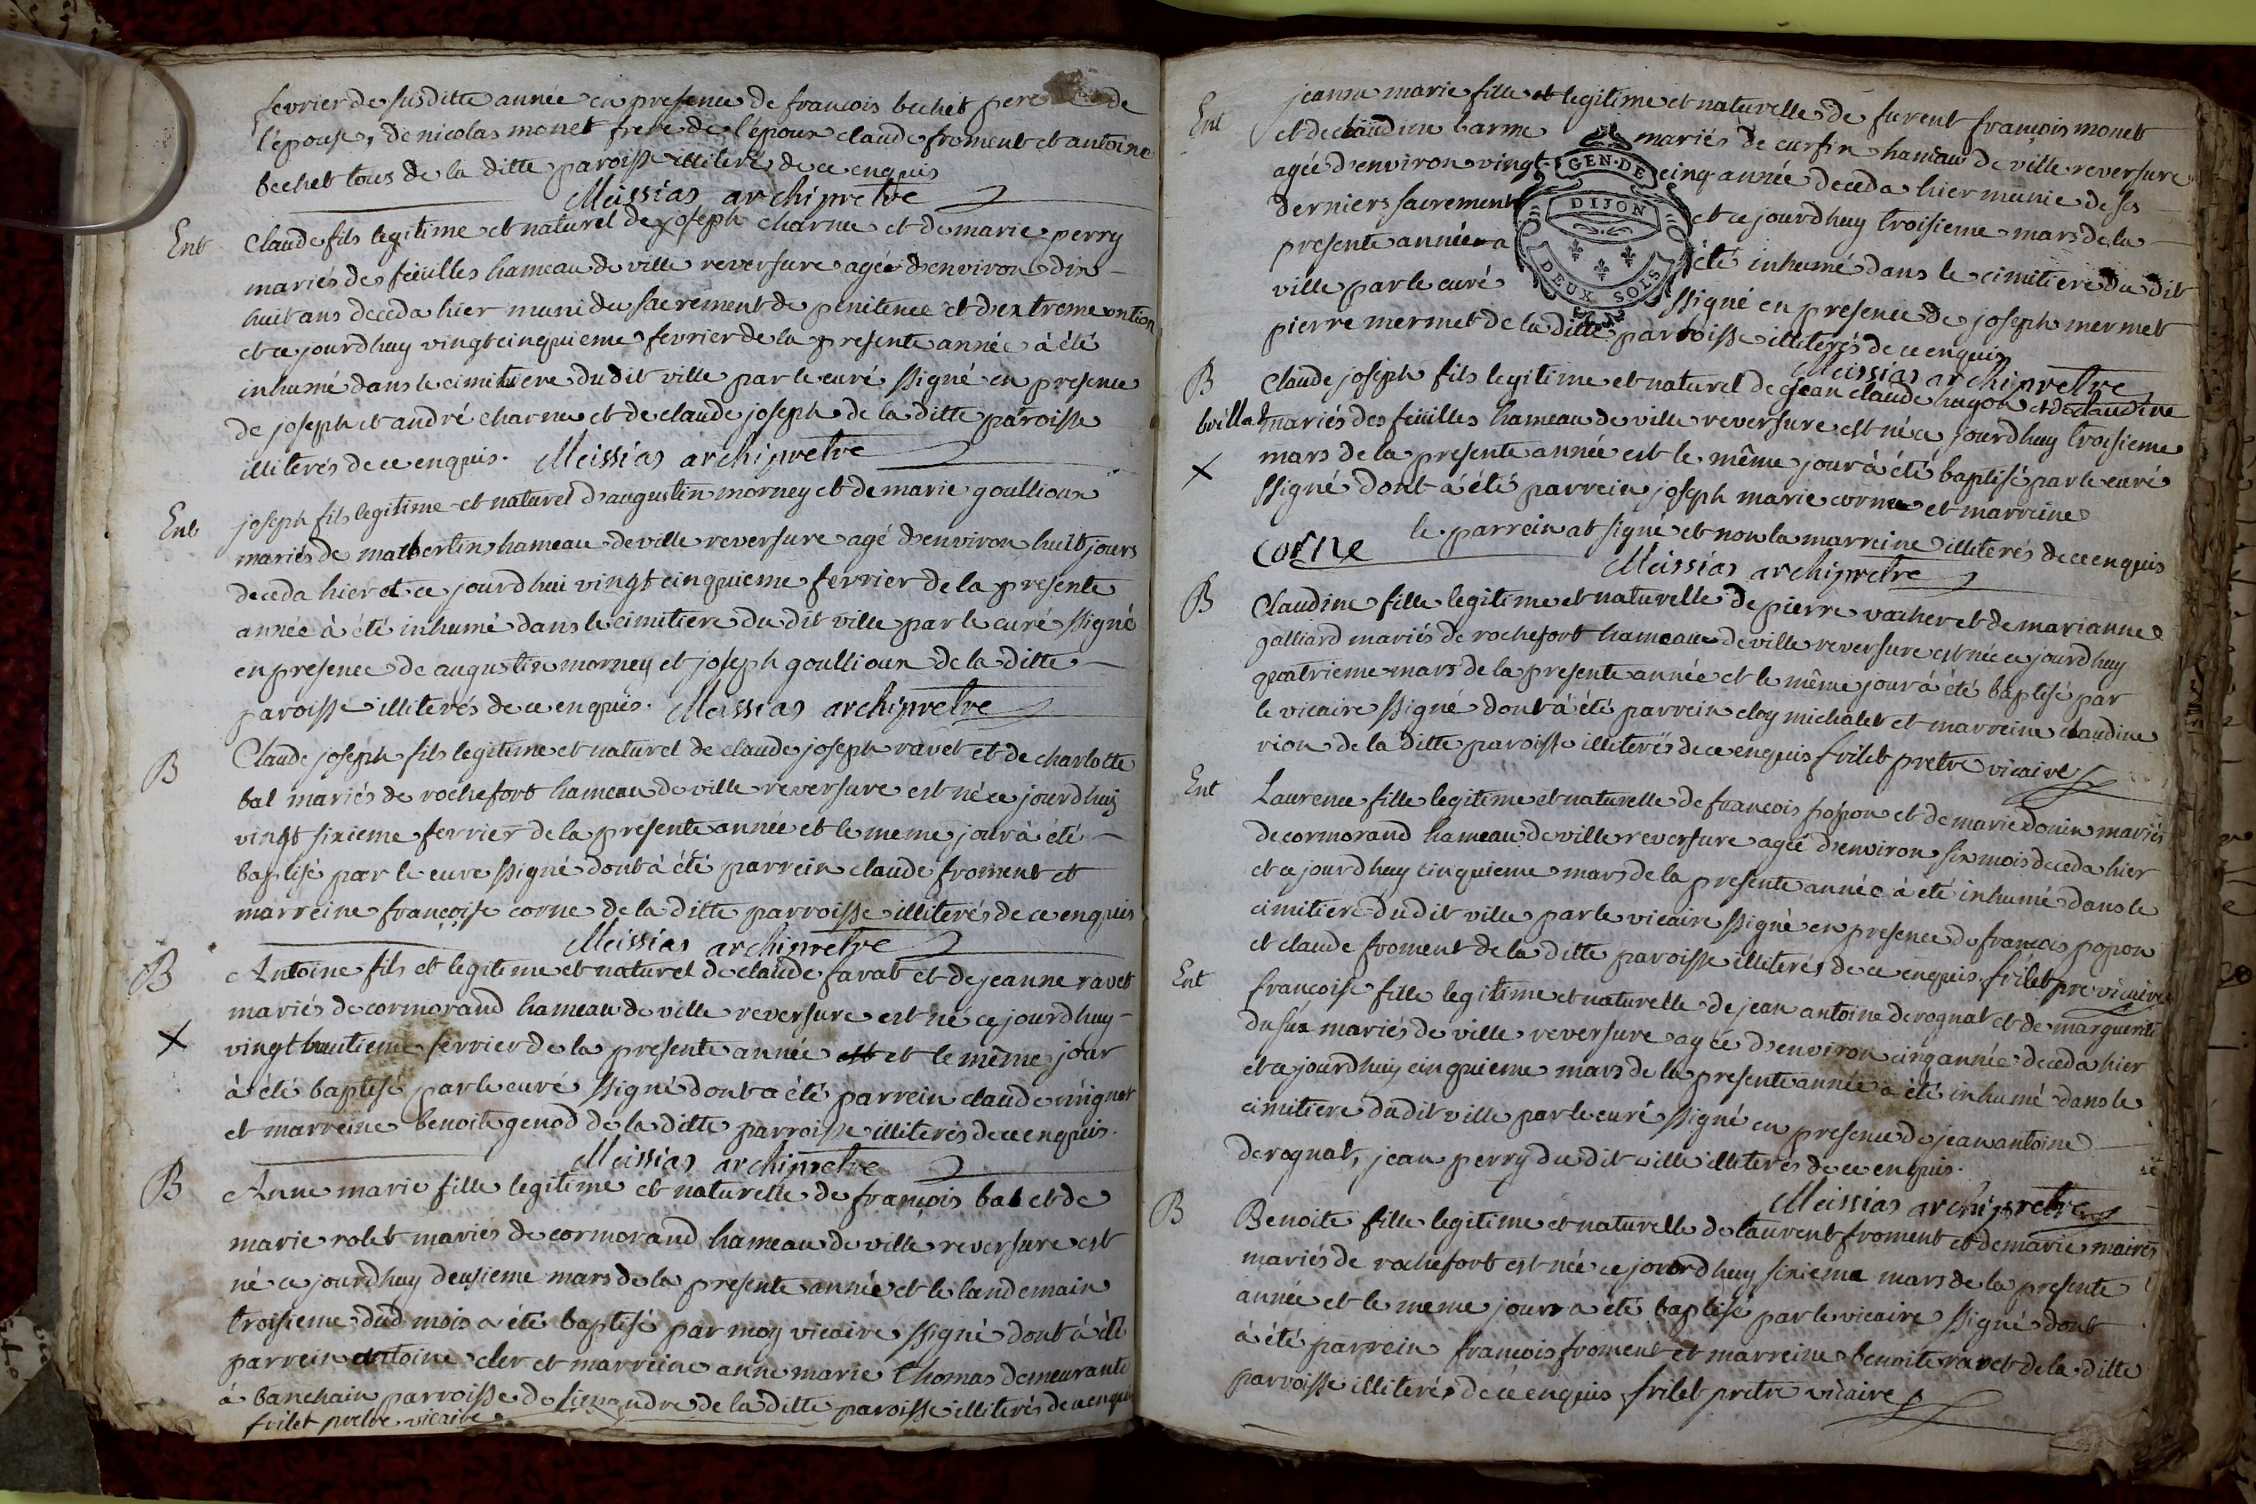 fevrier de susditte année en presence de francois bechet pere de
l'epouse, de nicolas monet frere de l'époux claude froment et antoine
bechet tous de la ditte paroisse illiteré de ce enquis
Meissias archipretre
Ent Claude fils legitime et naturel de joseph charme et de marie perry
mariés des feüilles hameau de ville reversure agée d'environ dix
huit ans deceda hier muni du sacrement de penitence et d'extreme ontion
et ce jourdhuy vingt cinquieme fevrier de la presente année à été
inhumé dans le cimitiere du dit ville par le curé ssigné en presence
de joseph et andré charme et de claude joseph de la ditte paroisse
illiterés de ce enquis. Meissias archipretre
Ent joseph fils legitime et naturel d'augustin morney et de marie goullioux
mariés de matbertin hameau de ville reversure agé d'environ huit jours
deceda hier et ce jourdhui vingt cinquieme fevrier de la presente
année à été inhumé dans le cimitiere du dit ville par le curé ssigné
en presence de augustin morney et joseph goullioux de la ditte
paroisse illiterés de ce enquis. Meissias archipretre
B Claude joseph fils legitime et naturel de claude joseph ravet et de charlotte
bal mariés de rochefort hameau de ville reversure est né ce jourdhuy
vingt sixieme fevrier de la presente année et le meme jour à été
baptisé par le cure ssigné dont à été parrein claude froment et
marreine françoise corne de la ditte parroisse illiterés de ce enquis
Meissias archipretre
B Antoine fils et legitime et naturel de claude favat et de jeanne ravet
mariés de cormorand hameau de ville reversure est né ce jourdhuy
X vingt huitieme fevrier de la presente année et le même jour
à été baptisé par le curé ssigné dont a été parrein claude
et marreine benoite genod de la ditte parroisse illiterés de ce enquis.
Meissias archipretre
B Anne marie fille legitime et naturelle de françois bal et de
marie rolet mariés de cormorand hameau de ville reversure est
né ce jourdhuy deusieme mars de la presente année et le landemain
troisieme dud mois a été baptisé par moy vicaire ssigné dont à été
parrein antoine cler et marreine anne marie thomas demeurante
à banchain parroisse de de la ditte paroisse illiterés de ce enquis
frilet pretre vicaire
Ent jeanne marie fille et legitime et naturelle de furent françois monet
et de claudine barme mariés de curfin hameau de ville reversure
agée d'environ vingt cinq année deceda hier munie de ses
derniers sacrements et ce jourdhuy troisieme mars de la
presente année a été inhumé dans le cimitiere du dit
ville par le curé ssigné en presence de joseph mermet
pierre mermet de la ditte parroisse illiterés de ce enquis
Meissias archipretre
GEN. DE
DIJON
DEUX SOLS
B Claude joseph fils legitime et naturel de jean claude hugon et de claudine
brillat mariés des feüilles hameau de ville reversure est né ce jourdhuy troisieme
X mars de la presente année est le même jour à été baptisé par le curé
ssigné dont à été parrein joseph marie corne et marreine
le parrein at signé et non la marreine illiterés de ce enquis
corne Meissias archipretre
B Claudine fille legitime et naturelle de pierre vacher et de marianne
galliard mariés de rochefort hameau de ville reversure est née ce jourdhuy
quatrieme mars de la presente année et le même jour à été baptisé par
le vicaire ssigné dont à été parrein eloy michalet et marreine claudine
vion de la ditte paroisse illiterés de ce enquis frilet pretre vicaire
Ent Laurence fille legitime et naturelle de françois popon et de marie donin mariés
de cormorand hameau de ville reversure agée d'environ six mois deceda hier
et ce jourdhuy cinquieme mars de la presente année à été inhumé dans le
cimitiere du dit ville par le vicaire ssigné en presence de francois popon
et claude froment de la ditte paroisse illiterés de ce enquis frilet pre vicaire
Ent francoise fille legitime et naturelle de jean antoine derognat et de marguerite
mariés de ville reversure agée d'environ cinq année deceda hier
et ce jourdhuy cinquieme mars de la presente année a été inhumé dans le
cimitiere du dit ville par le curé ssigné en presence de jean antoine
derognat, jean perry du dit ville illiterés de ce enquis.
Meissias archipretre
B Benoite fille legitime et naturelle de laurent froment et de marie maires
mariés de rochefort est née ce jourdhuy sixieme mars de la presente
année et le meme jour a été baptisé par le vicaire ssigné dont
à été parrein francois froment et marreine benoite ravet de la ditte
parroisse illiterés de ce enquis frilet pretre vicaire